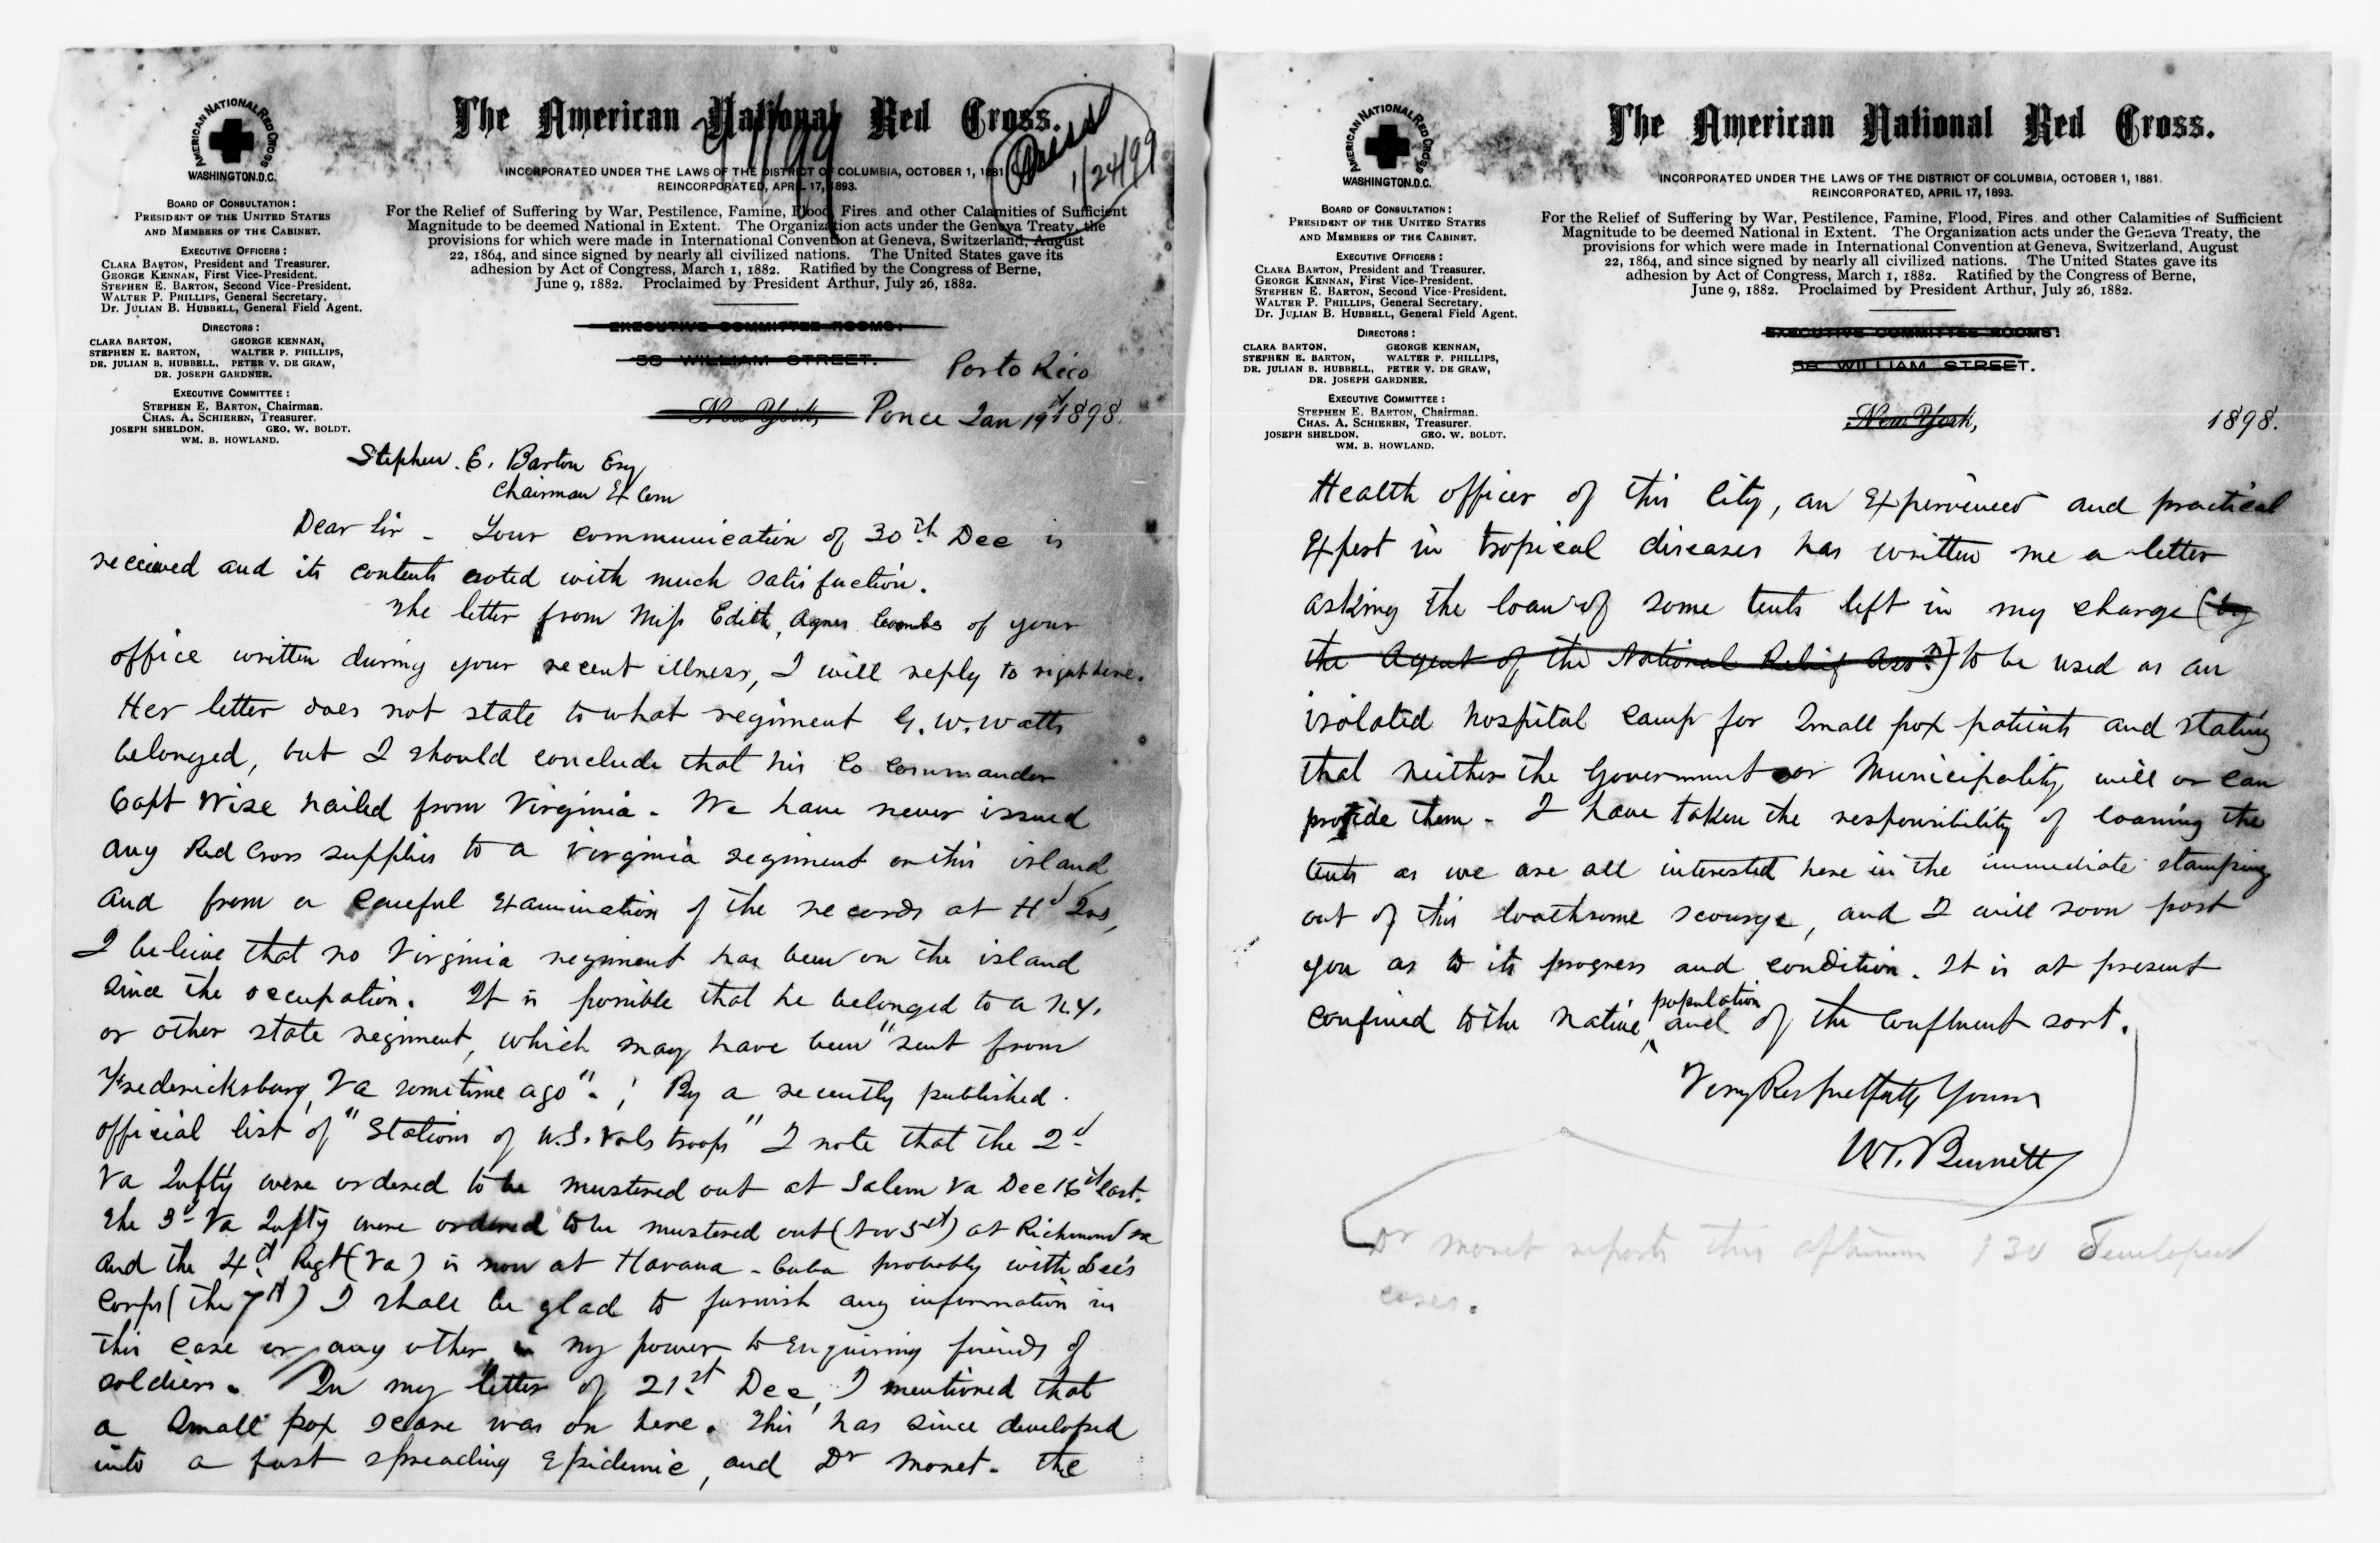 AMERICAN NATIONAL RED CROSS
WASHINGTON.D.C.
The American National Red Cross.
INCORPORATED UNDER THE LAWS OF THE DISTRICT OF COLUMBIA, OCTOBER 1, 1881
REINCORPORATED, APRIL 17, 1893.
1/24/99
For the Relief of Suffering by War, Pestilence, Famine, Flood, Fires and other Calamities of Sufficient
Magnitude to be deemed National in Extent. The Organization acts under the Geneva Treaty, the
provisions for which were made in International Convention at Geneva, Switzerland, August
22, 1864, and since signed by nearly all civilized nations. The United States gave its
adhesion by Act of Congress, March 1, 1882. Ratified by the Congress of Berne,
June 9, 1882. Proclaimed by President Arthur, July 26, 1882.
BOARD OF CONSULTATION:
PRESIDENT OF THE UNITED STATES
AND MEMBERS OF THE CABINET.
EXECUTIVE OFFICERS:
CLARA BARTON, President and Treasurer.
GEORGE KENNAN, First Vice-President.
STEPHEN E. BARTON, Second Vice-President.
WALTER P. PHILLIPS, General Secretary.
Dr. JULIAN B. HUBBELL, General Field Agent.
DIRECTORS:
CLARA BARTON, GEORGE KENNAN,
STEPHEN E. BARTON, WALTER P. PHILLIPS,
DR. JULIAN B. HUBBELL, PETER V. DE GRAW,
DR. JOSEPH GARDNER.
EXECUTIVE COMMITTEE:
STEPHEN E. BARTON, Chairman.
CHAS. A. SCHIEREN, Treasurer.
JOSEPH SHELDON. GEO. W. BOLDT.
WM. B. HOWLAND.
EXECUTIVE COMMITTEE ROOMS:
58 WILLIAM STREET.
Porto Rico
New York, Ponce Jan 19th 1898.
Stephen. E. Barton Esq
Chairman Ex Com
Dear Sir - Your communication of 30th Dec is
received and its contents noted with much satisfaction.
The letter from Miss Edith, Agnes Coombs of your
office written during your recent illness, I will reply to right here.
Her letter does not state to what regiment G. W. Watts
belonged, but I should conclude that his Co Commander
Capt Wise hailed from Virginia - We have never issued
any Red Cross supplies to a Virginia regiment on this island
and from a careful examination of the records at Hd Qrs,
I believe that no Virginia regiment has been on the island
since the occupation. It is possible that he belonged to a N.Y.
or other state regiment, which may have been "sent from
Fredericksburg, Va sometime ago". ; By a recently published.
official list of "Stations of U.S. Vols troops" I note that the 2d
Va Infty were ordered to be mustered out at Salem Va Dec 16th last.
The 3d Va Infty were ordered to be mustered out (Nov 5th) at Richmond Va
and the 4th Regt (Va) is now at Havana - Cuba probably with Lee's
Corps (the 7th) I shall be glad to furnish any information in
this case or any other in my power to enquiring friends of
soldiers. In my letter of 21st Dec, I mentioned that
a Small pox scare was on here. This has since developed
into a fast spreading Epidemic, and Dr Monet. the
AMERICAN NATIONAL RED CROSS
WASHINGTON.D.C.
The American National Red Cross.
INCORPORATED UNDER THE LAWS OF THE DISTRICT OF COLUMBIA, OCTOBER 1, 1881.
REINCORPORATED, APRIL 17, 1893.
For the Relief of Suffering by War, Pestilence, Famine, Flood, Fires and other Calamities of Sufficient
Magnitude to be deemed National in Extent. The Organization acts under the Geneva Treaty, the
provisions for which were made in International Convention at Geneva, Switzerland, August
22, 1864, and since signed by nearly all civilized nations. The United States gave its
adhesion by Act of Congress, March 1, 1882. Ratified by the Congress of Berne,
June 9, 1882. Proclaimed by President Arthur, July 26, 1882.
BOARD OF CONSULTATION:
PRESIDENT OF THE UNITED STATES
AND MEMBERS OF THE CABINET.
EXECUTIVE OFFICERS:
CLARA BARTON, President and Treasurer.
GEORGE KENNAN, First Vice-President.
STEPHEN E. BARTON, Second Vice-President.
WALTER P. PHILLIPS, General Secretary.
Dr. JULIAN B. HUBBELL, General Field Agent.
DIRECTORS:
CLARA BARTON, GEORGE KENNAN,
STEPHEN E. BARTON, WALTER P. PHILLIPS,
DR. JULIAN B. HUBBELL, PETER V. DE GRAW,
DR. JOSEPH GARDNER.
EXECUTIVE COMMITTEE:
STEPHEN E. BARTON, Chairman.
CHAS. A. SCHIEREN, Treasurer.
JOSEPH SHELDON. GEO. W. BOLDT.
WM. B. HOWLAND.
EXECUTIVE COMMITTEE ROOMS:
58 WILLIAM STREET.
New York, 1898.
Health officer of this City, an Experienced and practical
Expert in tropical diseases has written me a letter
asking the loan of some tents left in my charge (by
the Agent of the National Relief Assn) to be used as an
isolated hospital camp for Small pox patients and stating
that neither the Government or Municipality will or can
provide them - I have taken the responsibility of loaning the
tents as we are all interested here in the immediate stamping
out of this loathsome scourge, and I will soon post
you as to its progress and condition. It is at present
confined to the native population and of the confluent sort.
Very Respectfully Yours
W. T. Bennett
Dr Monet reports this afternoon 130 developed
cases.